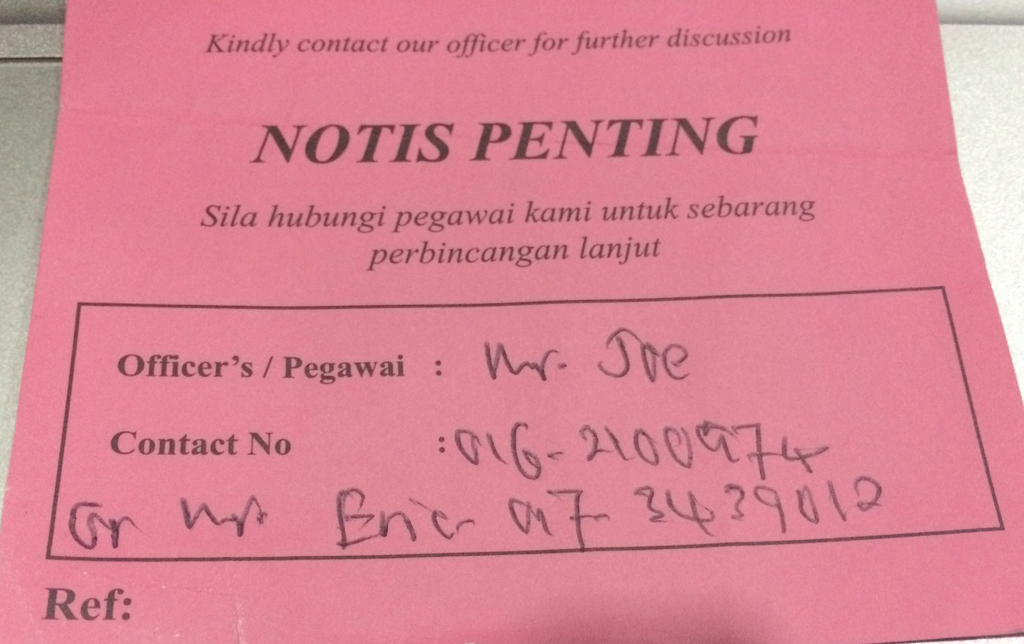 Kindly contact our officer for further discussion
NOTIS PENTING
Sila hubungi pegawai kami untuk sebarang
perbincangan lanjut
Officer's / Pegawai : Mr. Joe
Contact No : 016-2100974
Or Mr. Eric 017-3439012
Ref: